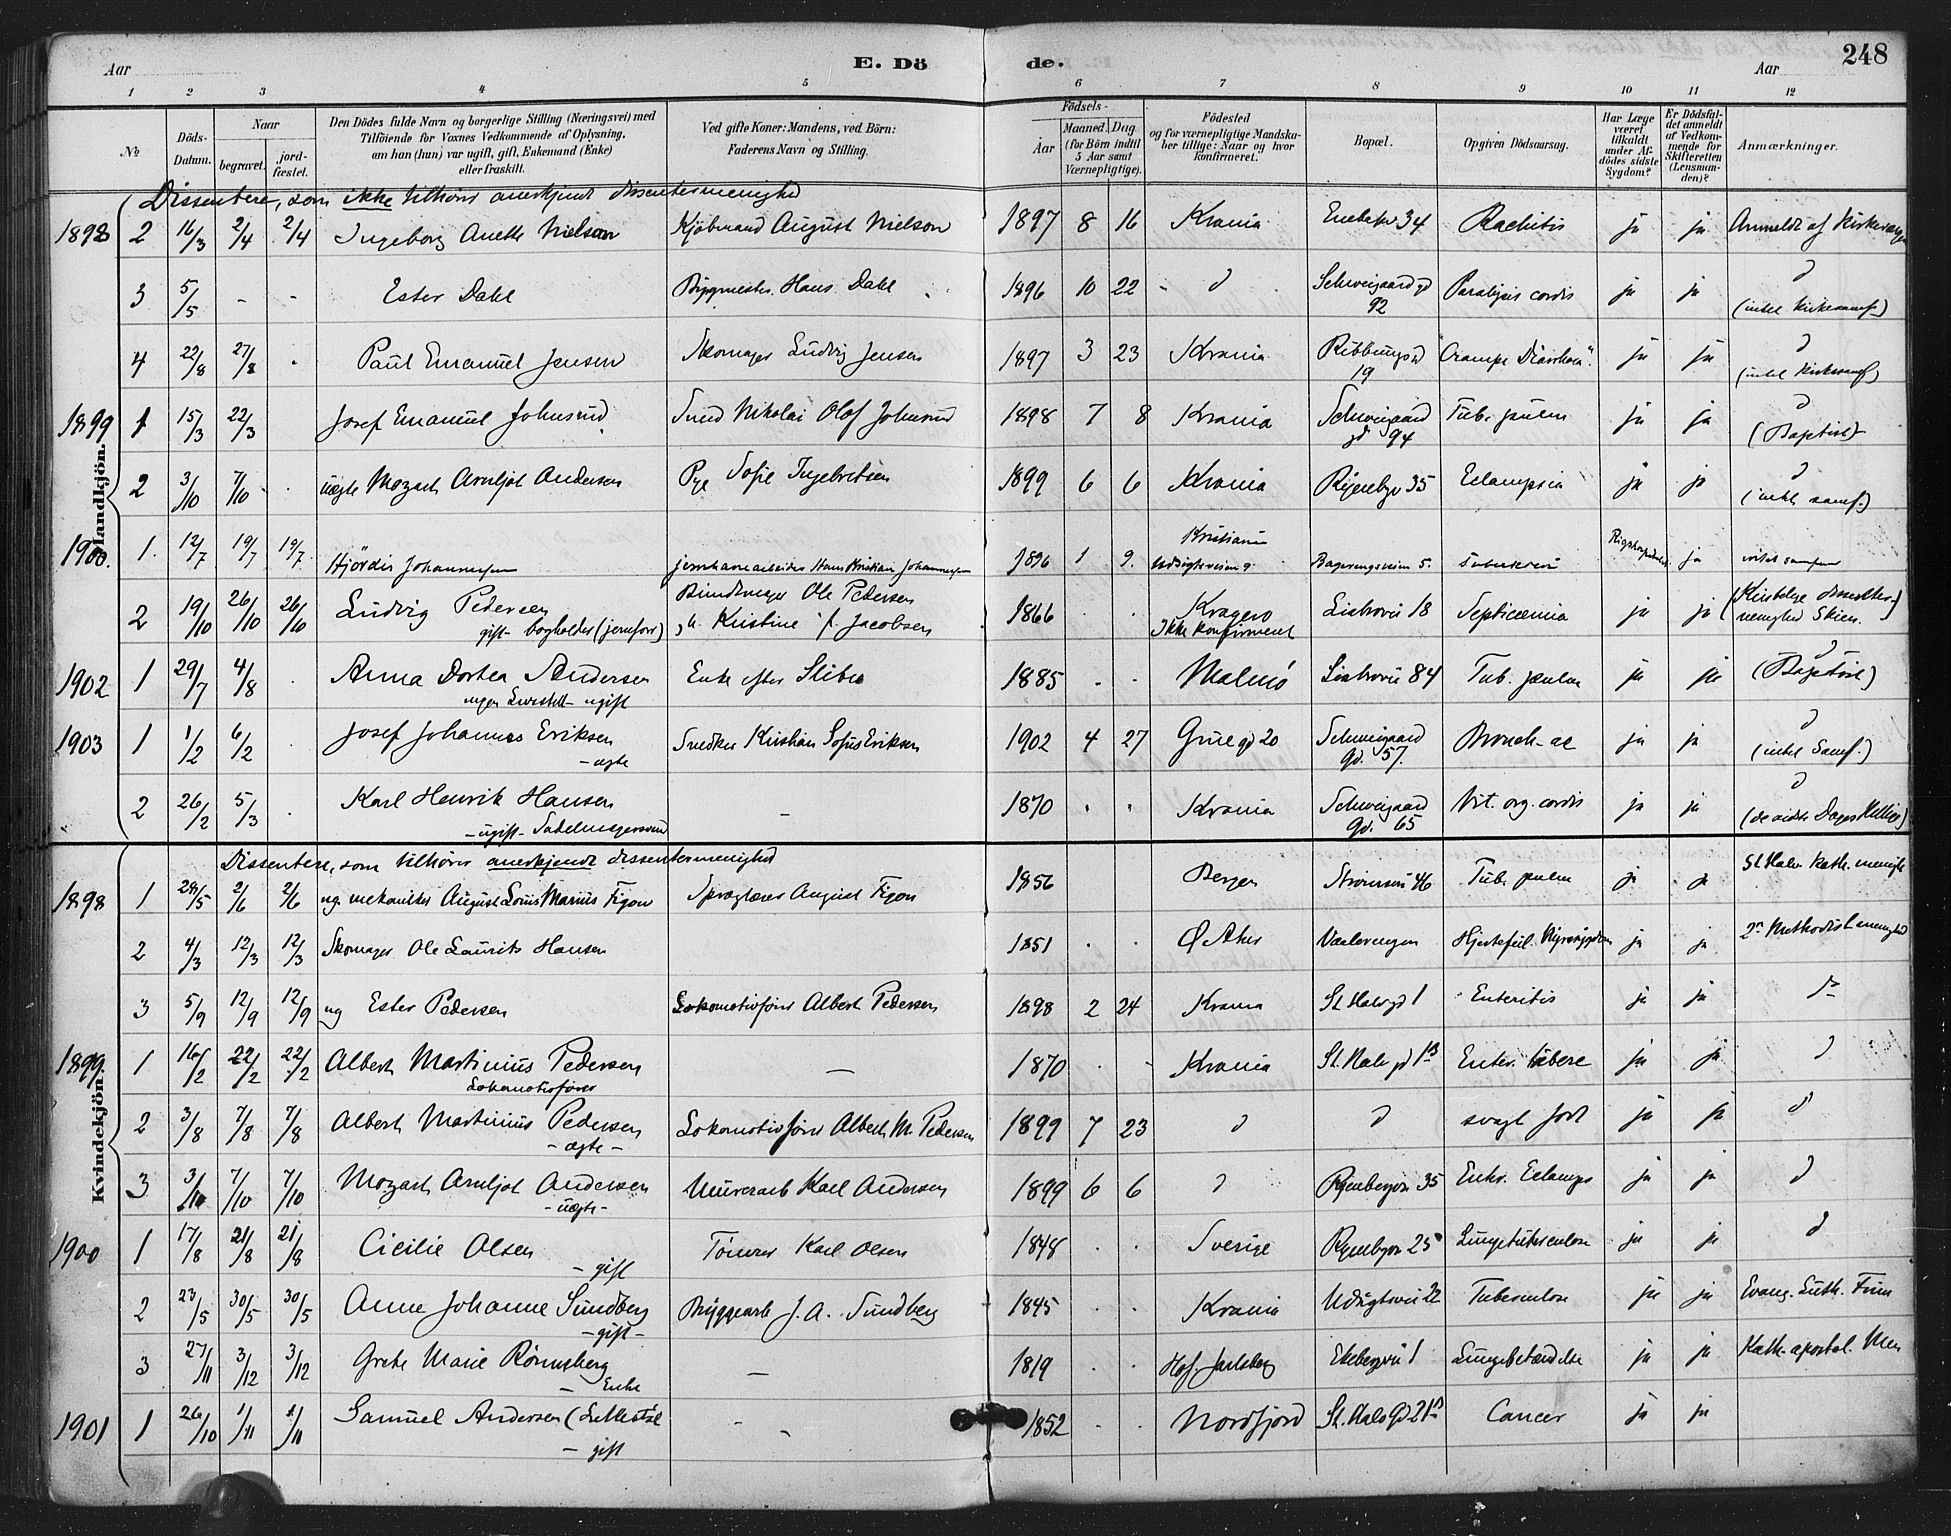 Aar
E. Dö
de.
Aar
248
1 2 3 4 5 6 7 8 9 10 11 12
No.
Döds-Datum.
Naar
begravet.
jord-fæstet.
Den Dödes fulde Navn og borgerlige Stilling (Næringsvei) med
Tilföiende for Voxnes Vedkommende af Oplysning,
om han (hun) var ugift, gift, Enkemand (Enke)
eller fraskilt.
Ved gifte Koner: Mandens, ved Börn:
Faderens Navn og Stilling.
Födsels-
Aar
Maaned. Dag.
(for Börn indtil
5 Aar samt
Værnepligtige).
Födested
og for værnepligtige Mandska-
ber tillige: Naar og hvor
konfirmeret.
Bopæl.
Opgiven Dödsaarsag.
Har Læge
været
tilkaldt
under Af-
dödes sidste
Sygdom?
Er Dödsfal-
det anmeldt
af Vedkom-
mende for
Skifteretten
(Lensman-
den)?
Anmærkninger.
Mandkjön.
Dissentere, som ikke tilhörer anerkjendt dissentermenighed
1898 2 16/3 2/4 2/4 Ingeborg Anette Nielson Kjöbmand August Nielson 1897 8 16 Krania 34 Rachitis ja ja Anmeldt af
3 5/5 - - Ester Dahl Bygmester Hans Dahl 1896 10 22 - d Schweigaard gd 92 Paralysis cordis ja ja d (intet kirkesamf.)
4 22/8 27/8 Paul Emanuel Jensen Skomager Ludvig Jensen 1897 3 23 Krania 19 "Crampe Diarrhoea". ja ja d (intet kirkesamf)
1899 1 15/3 22/3 Josef Emanuel Johnsrud Sned Nikolai Olaf Johnsrud 1898 7 8 Krania Schweigaard gd 94 Tub. pulm ja ja d (Baptist)
2 3/10 7/10 uægte Mozart Arnljot Andersen Pge Sofie Ingebretsen 1899 6 6 Krania 35 Eclampsia ja ja d (intet samf.)
1900. 1. 12/7 19/7 19/7. Hjördis Johannessen Hans Kristian Johannessen 1896 1 9. Kristiania 5. ja
2 19/10 26/10 26/10 Ludvig Pedersen gift- bogholder Ole Pedersen Kristine f. Jacobsen 1866 Kragerö Ikke konfirmeret 18 Septicæmia ja ja Skien.
1902 1 29/7 4/8 Anna Dortea Andersen ugift Enke efter 1885 Malmö 84 Tub. pulm ja ja d (Baptist)
1903 1 1/2 6/2 Josef Johannes Eriksen - ægte Snedker Kristian Sofus Eriksen 1902 4 27 Grue gd 20 Schweigaard gd. 57. Bronch- ac ja ja d (intet Samf.)
2 26/2 5/3 Karl Henrik Hansen - ugift - Sadelmagersvend - 1870 Krania Schweigaard gd. 65 Vit. org. cordis ja ja d (de sidste Dages Hellige)
Kvindekjön.
Dissentere, som tilhörer anerkjendt dissentermenighed
1898 1 28/5 2/6 2/6 ug mekaniker August Louis Marius Figon Sproglærer August Figon 1856 Bergen 46 Tub. pulm ja ja St Halv. kath. menigh
2 4/3 12/3 12/3 Skomager Ole Laurits Hansen 1851 Ø Aker Vaalerengen Hjertefeil. ja ja Methodist menighed
3 5/9 12/9 12/9 ug Ester Pedersen Lokomotivförer Albert Pedersen 1898 2 24 Krania St Halv gd 1 Enteritis ja ja do
1899. 1 16/2 22/2 22/2 Albert Martinius Pedersen Lokomotivförer - 1870 Krania St. Halv gd 1B ja ja d
2 3/8 7/8 7/8 Albert Martinius Pedersen - ægte - Lokomotivförer Albert M. Pedersen 1899 7 23 d d svagt född ja ja d
3 3/10 7/10 7/10 Mozart Arnljot Andersen - uægte - Murerarb Karl Andersen 1899 6 6 d 35 Eclamps ja ja d
1900 1 17/8 21/8 21/8 Cicilie Olsen - gift Tömrer Karl Olsen 1848 Sverige 25 Lungetuberculose ja ja d
2 23/5 30/5 30/5 Anne Johanne Sundberg - gift - Bryggearb J. A. Sundberg 1845 Krania 22 Tuberculose ja ja Evang. Luth. Frim
3 27/11 3/12 3/12 Grete Marie Rönneberg - Enke - 1819 Hof. Jarlsberg Ekebergvei 1 Lungebetændelse ja ja Kath. apostol. Men
1901 1 26/10 1/11 1/11 Samuel Andersen - gift - 1852 Nordfjord St. Halv Gd 21B Cancer ja ja